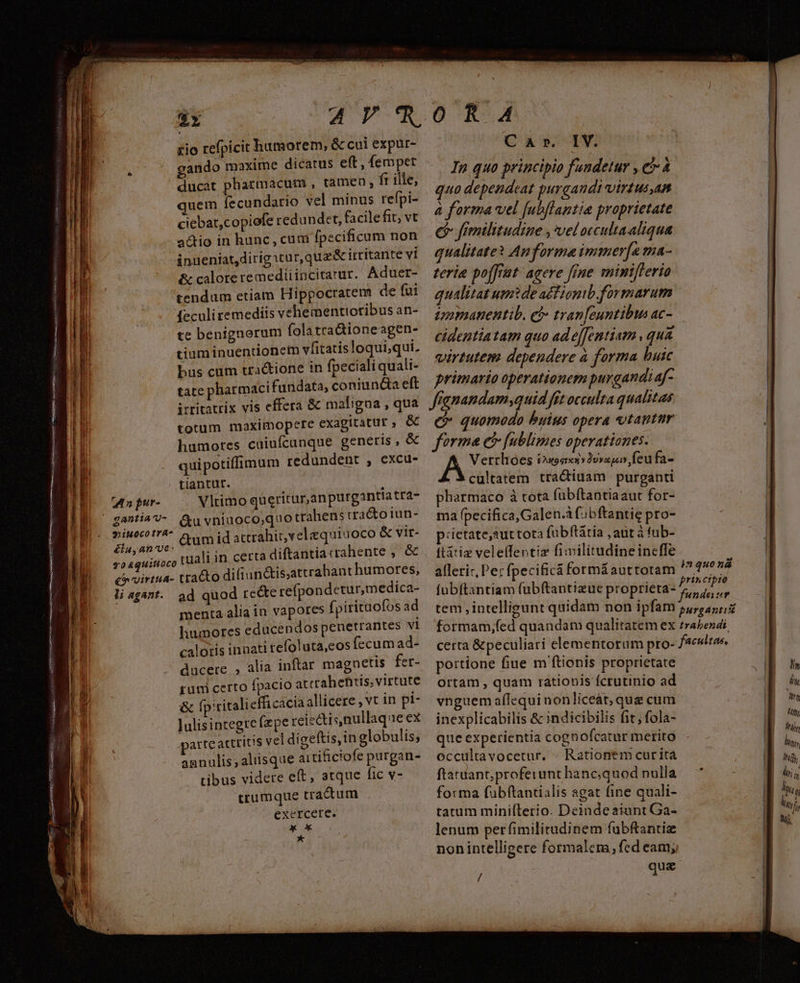 82 AVRORA
tio respicit humorem, & cui expur-
gando maxime dicatus est, semper
ducat pharmacum, tamen, si ille,
quem secundario vel minus respi-
ciebat, copiose redundet, facile fit, vt
actio in hunc, cum specificum non
inueniat, dirigatur, quæ & irritante vi
& calore remedii incitatur. Aduer-
tendum etiam Hippocratem de sui
seculi remediis vehementioribus an-
te benignorum sola tractione agen-
tium inuentionem vsitatis loqui, qui-
bus cum tractione in speciali quali-
tate pharmaci fundata, coniuncta est
irritatrix vis effera & maligna, qua
totum maximopere exagitatur, &
humores cuiuscunque generis, &
qui potissimum redundent, excu-
tiantur.
An pur-
gantia v-
niuoco tra-
ctu, an ve-
ro æquiuoco
& virtua-
li agant.
Vltimo queritur, an purgantia tra-
ctu vniuoco, quo trahens tracto iun-
ctum id attrahit, vel æquiuoco & vir-
tuali in certa distantia trahente, &
tracto disiunctis, attrahant humores,
ad quod recte respondetur, medica-
menta alia in vapores spirituosos ad
humores educendos penetrantes vi
caloris innati resoluta, eos secum ad-
ducere, alia instar magnetis fer-
rum certo spacio attrahentis, virtute
& spiritali efficacia allicere, vt in pi-
lulis integre sæpe reiectis, nullaque ex
parte attritis vel digestis, in globulis,
annulis, aliisque artificiose purgan-
tibus videre est, atque sic v-
trumque tractum
exercere.
* *
*
CAP. IV.
In quo principio fundetur, & à
quo dependeat purgandi virtus, an
à forma vel substantiæ proprietate
& similitudine, vel occulta aliqua
qualitate? An forma immersa ma-
teria possint agere sine ministerio
qualitatum? de actionib. formarum
immanentib. & transeuntibus ac-
cidentia tam quo ad essentiam, qua
virtutem dependere à forma huic
primario operationem purgandi as-
signandam, quid sit occulta qualitas
& quomodo huius opera vtantur
formæ & sublimes operationes.
Verrhoes ἑλκυστικὴν δύναμιν, seu fa-
cultatem tractiuam purganti
pharmaco à tota substantia aut for-
ma specifica, Galen. à substantiæ pro-
prietate, aut tota substātia, aut à sub-
stātiæ vel essentiæ similitudine inesse
asserit, Per specificā formā aut totam
substantiam substantiæue proprieta-
tem, intelligunt quidam non ipsam
formam, sed quandam qualitatem ex
certa & peculiari elementorum pro-
portione siue mistionis proprietate
ortam, quam rationis scrutinio ad
vnguem assequi non liceat, quæ cum
inexplicabilis & indicibilis sit, sola-
que experientia cognoscatur merito
occulta vocetur. Rationem cur ita
statuant, proferunt hanc, quod nulla
forma substantialis agat sine quali-
tatum ministerio. Deinde aiunt Ga-
lenum per similitudinem substantiæ
non intelligere formalem, sed eam,
quæ
In quo nā
principio
fundetur
purgantiū
trahendi
facultas.